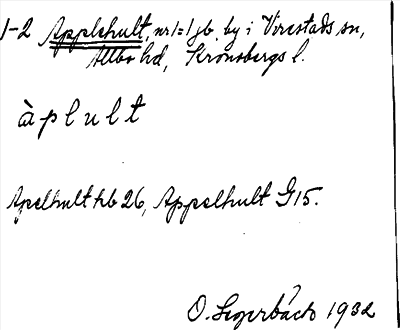 1-2 Applehult, nr 1=1 jb. by i Virestads sn,
Allbo hd, Kronobergs l.
àplult
Apelhult hb 26, Appelhult G 15.
O. 1932